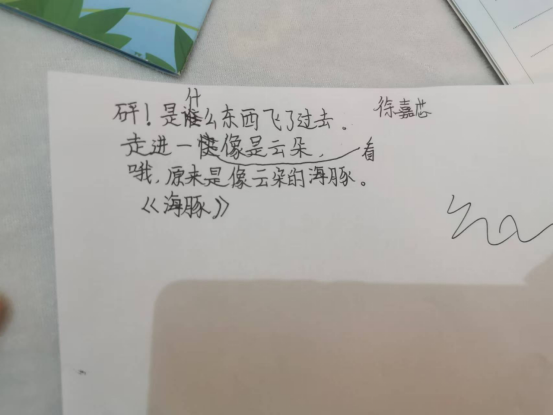 砰！是什么东西飞了过去。
徐嘉芯
走进一看像是云朵，
哦，原来是像云朵的海豚。
《海豚》